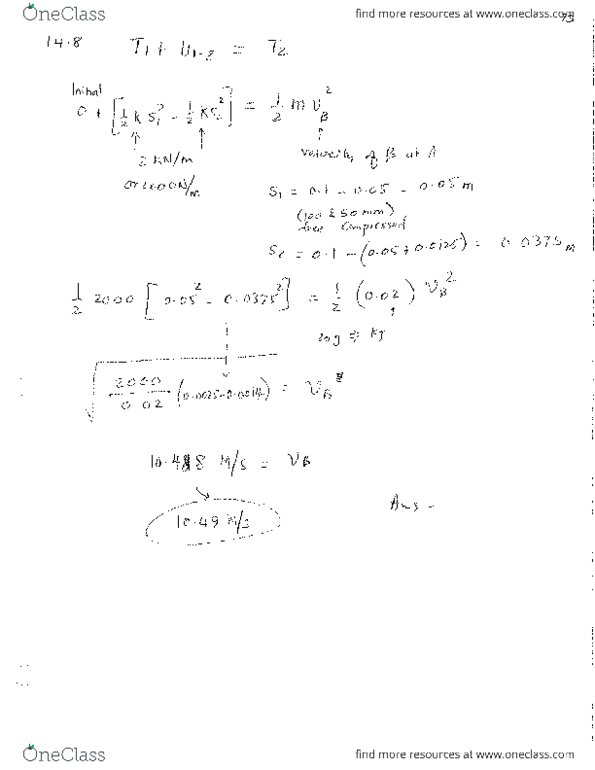 OneClass
find more resources at www.oneclass.com
14.8 T1 + U1-2 = T2
Initial
0 + [1/2 k S1² - 1/2 k S2²] = 1/2 m VB²
2 kN/m
or 2000 N/m
velocity of B at A
S1 = 0.1 - 0.05 - 0.05 m
(100 & 50 mm)
free compressed
= 0.1 - (0.05 + 0.0125) = 0.0375 m
1/2 2000 [0.05² - 0.0375²] = 1/2 (0.02) VB²
kg
√ 2000/0.02 (0.0025-0.0014) = VB
m/s = VB
10.49 m/s
Ans -
OneClass
find more resources at www.oneclass.com